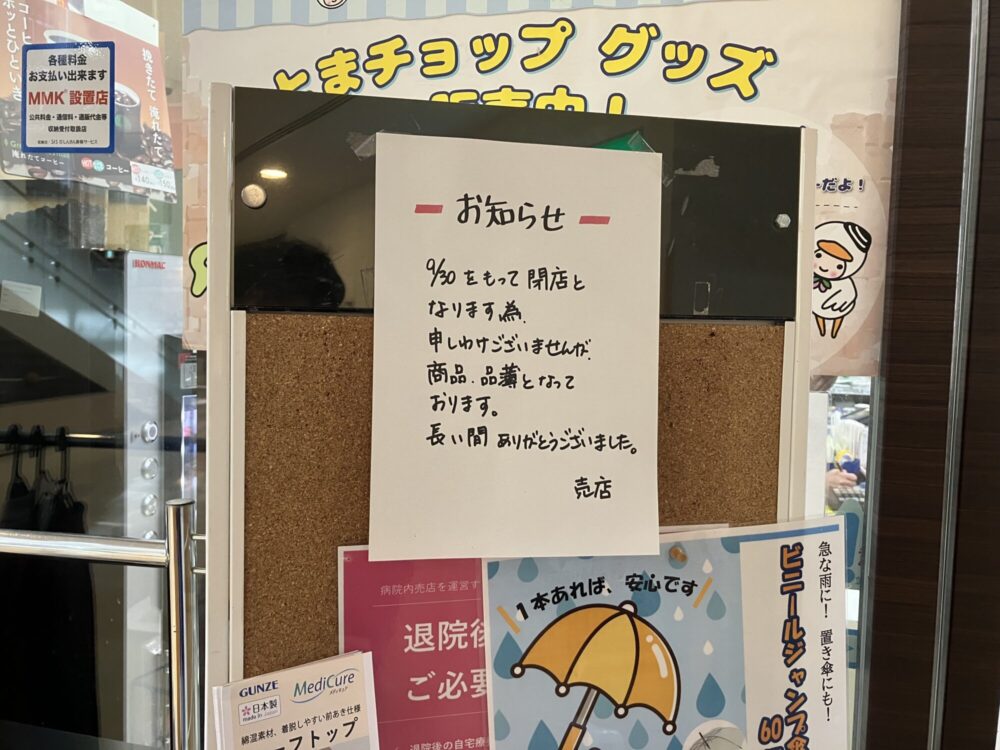 とまチョップ グッズ
販売中！
各種料金
お支払い出来ます
MMK設置店
公共料金・通信料・通販代金等
収納受付取扱店
挽きたて 淹れたて
コーヒー
ホッとひといき
淹れたてコーヒー
HOT
コーヒー
IRONMAC
だよ！
お知らせ
9/30 をもって 閉店と
なります為、
申しわけございませんが、
商品、品薄となって
おります。
長い間 ありがとうございました。
売店
病院内売店を運営す
退院後
ご必要
退院後の自宅療
1本あれば、安心です
急な雨に！ 置き傘にも！
ビニールジャンプ傘
60
GUNZE
MediCure
メディキュア
日本製
made in Japan
綿混素材、着脱しやすい前あき仕様
フトップ